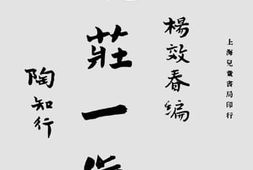 上海兒童書局印行
楊效春编
莊一
陶知行